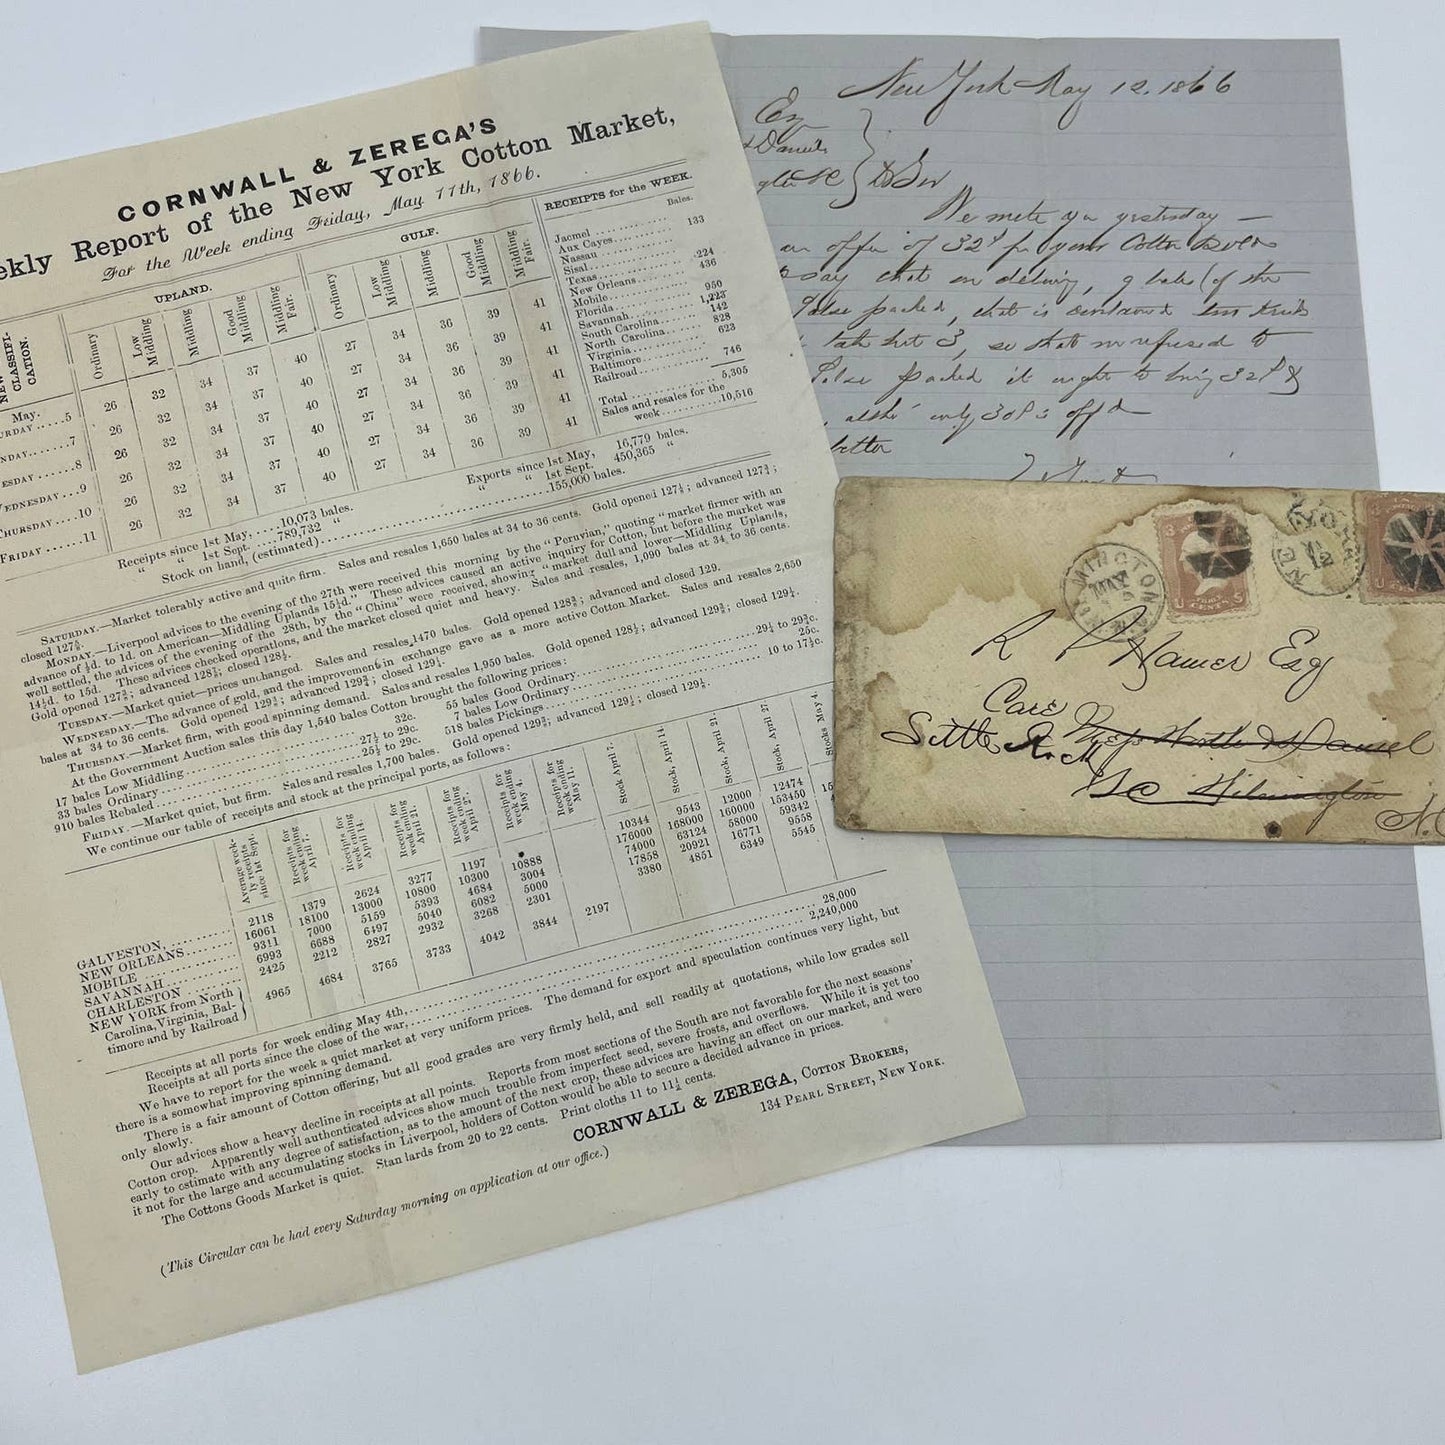 CORNWALL & ZEREGA'S
ekly Report of the New York Cotton Market,
For the Week ending Friday, May 11th, 1866.
NEW CLASSIFI-CATION.
UPLAND.
GULF.
Ordinary
Low Middling
Middling
Good Middling
Middling Fair.
Ordinary
Low Middling
Middling
Good Middling
Middling Fair.
May.
URDAY.....5 26 32 34 37 40 27 34 36 39 41
NDAY.......7 26 32 34 37 40 27 34 36 39 41
ESDAY.....8 26 32 34 37 40 27 34 36 39 41
EDNESDAY...9 26 32 34 37 40 27 34 36 39 41
HURSDAY....10 26 32 34 37 40 27 34 36 39 41
FRIDAY......11 26 32 34 37 40 27 34 36 39 41
RECEIPTS for the WEEK.
Bales.
Jacmel 133
Aux Cayes
Nassau
Sisal
Texas 224
New Orleans 436
Mobile
Florida 950
Savannah 1,223
South Carolina 142
North Carolina 828
Virginia 623
Baltimore
Railroad 746
Total 5,305
Sales and resales for the
week 10,516
Receipts since 1st May, 10,073 bales.
" " 1st Sept. 789,732 "
Exports since 1st May, 16,779 bales.
" " 1st Sept. 450,365 "
Stock on hand, (estimated) 155,000 bales.
SATURDAY.—Market tolerably active and quite firm. Sales and resales 1,650 bales at 34 to 36 cents. Gold opened 127¼; advanced 127¾;
closed 127⅝.
MONDAY.—Liverpool advices to the evening of the 27th were received this morning by the "Peruvian," quoting "market firmer with an
advance of ½d. to 1d. on American—Middling Uplands 15½d." These advices caused an active inquiry for Cotton, but before the market was
well settled, the advices of the evening of the 28th, by the "China" were received, showing "market dull and lower—Middling Uplands,
14½d. to 15d. These advices checked operations, and the market closed quiet and heavy. Sales and resales, 1,090 bales at 34 to 36 cents.
Gold opened 127¾; advanced 128¾; closed 128½.
TUESDAY.—Market quiet—prices unchanged. Sales and resales 1470 bales. Gold opened 128¾; advanced and closed 129.
WEDNESDAY.—The advance of gold, and the improvement in exchange gave as a more active Cotton Market. Sales and resales 2,650
bales at 34 to 36 cents. Gold opened 129¼; advanced 129¾; closed 129¼.
THURSDAY.—Market firm, with good spinning demand. Sales and resales 1,950 bales. Gold opened 128½; advanced 129¾; closed 129¼.
At the Government Auction sales this day 1,540 bales Cotton brought the following prices:
17 bales Low Middling 32c.
33 bales Ordinary 27½ to 29c.
910 bales Rebaled 25½ to 29c.
55 bales Good Ordinary 29¼ to 29¾c.
7 bales Low Ordinary 25c.
518 bales Pickings 10 to 17½c.
FRIDAY.—Market quiet, but firm. Sales and resales 1,700 bales. Gold opened 129¾; advanced 129½; closed 129¼.
We continue our table of receipts and stock at the principal ports, as follows:
Average week-ly receipts since 1st Sept.
Receipts for week ending April 7.
Receipts for week ending April 14.
Receipts for week ending April 21.
Receipts for week ending April 27.
Receipts for week ending May 4.
Receipts for week ending May 11.
Stock April 7.
Stock, April 14.
Stock, April 21.
Stock, April 27.
Stocks May 4.
GALVESTON, 2118 1379 2624 3277 1197 10888 10344 9543 12000 12474
NEW ORLEANS 16061 18100 13000 10800 10300 3004 176000 168000 160000 153450
MOBILE 9311 7000 5159 5393 4684 5000 74000 63124 58000 59342
SAVANNAH 6993 6688 6497 5040 6082 2301 17858 20921 16771 9558
CHARLESTON 2425 2212 2827 2932 3268 3380 4851 6349 5545
NEW YORK from North
Carolina, Virginia, Bal-
timore and by Railroad 4965 4684 3765 3733 4042 3844 2197
Receipts at all ports for week ending May 4th, 28,000
Receipts at all ports since the close of the war, 2,240,000
We have to report for the week a quiet market at very uniform prices. The demand for export and speculation continues very light, but
there is a somewhat improving spinning demand.
There is a fair amount of Cotton offering, but all good grades are very firmly held, and sell readily at quotations, while low grades sell
only slowly.
Our advices show a heavy decline in receipts at all points. Reports from most sections of the South are not favorable for the next seasons'
Cotton crop. Apparently well authenticated advices show much trouble from imperfect seed, severe frosts, and overflows. While it is yet too
early to estimate with any degree of satisfaction, as to the amount of the next crop, these advices are having an effect on our market, and were
it not for the large and accumulating stocks in Liverpool, holders of Cotton would be able to secure a decided advance in prices.
The Cottons Goods Market is quiet. Stan lards from 20 to 22 cents. Print cloths 11 to 11½ cents.
CORNWALL & ZEREGA, COTTON BROKERS,
134 PEARL STREET, NEW YORK.
(This Circular can be had every Saturday morning on application at our office.)
New York May 12. 1866
Esq
& Daniels
D Sir
We wrote you yesterday —
an offer of 32¢ for your Cotton
say that on delivery, 9 bales (of the
False packed, that is
take but 3, so that we refused to
False packed it ought to bring 32¢ &
only 30¢ is off'd
better
WILMINGTON N.C.
MAY
NEW YORK
12
3 3
U CENTS S
R P Hamer Esq
Care Mess Worth & Daniel
Little Rock
Wilmington
N.C